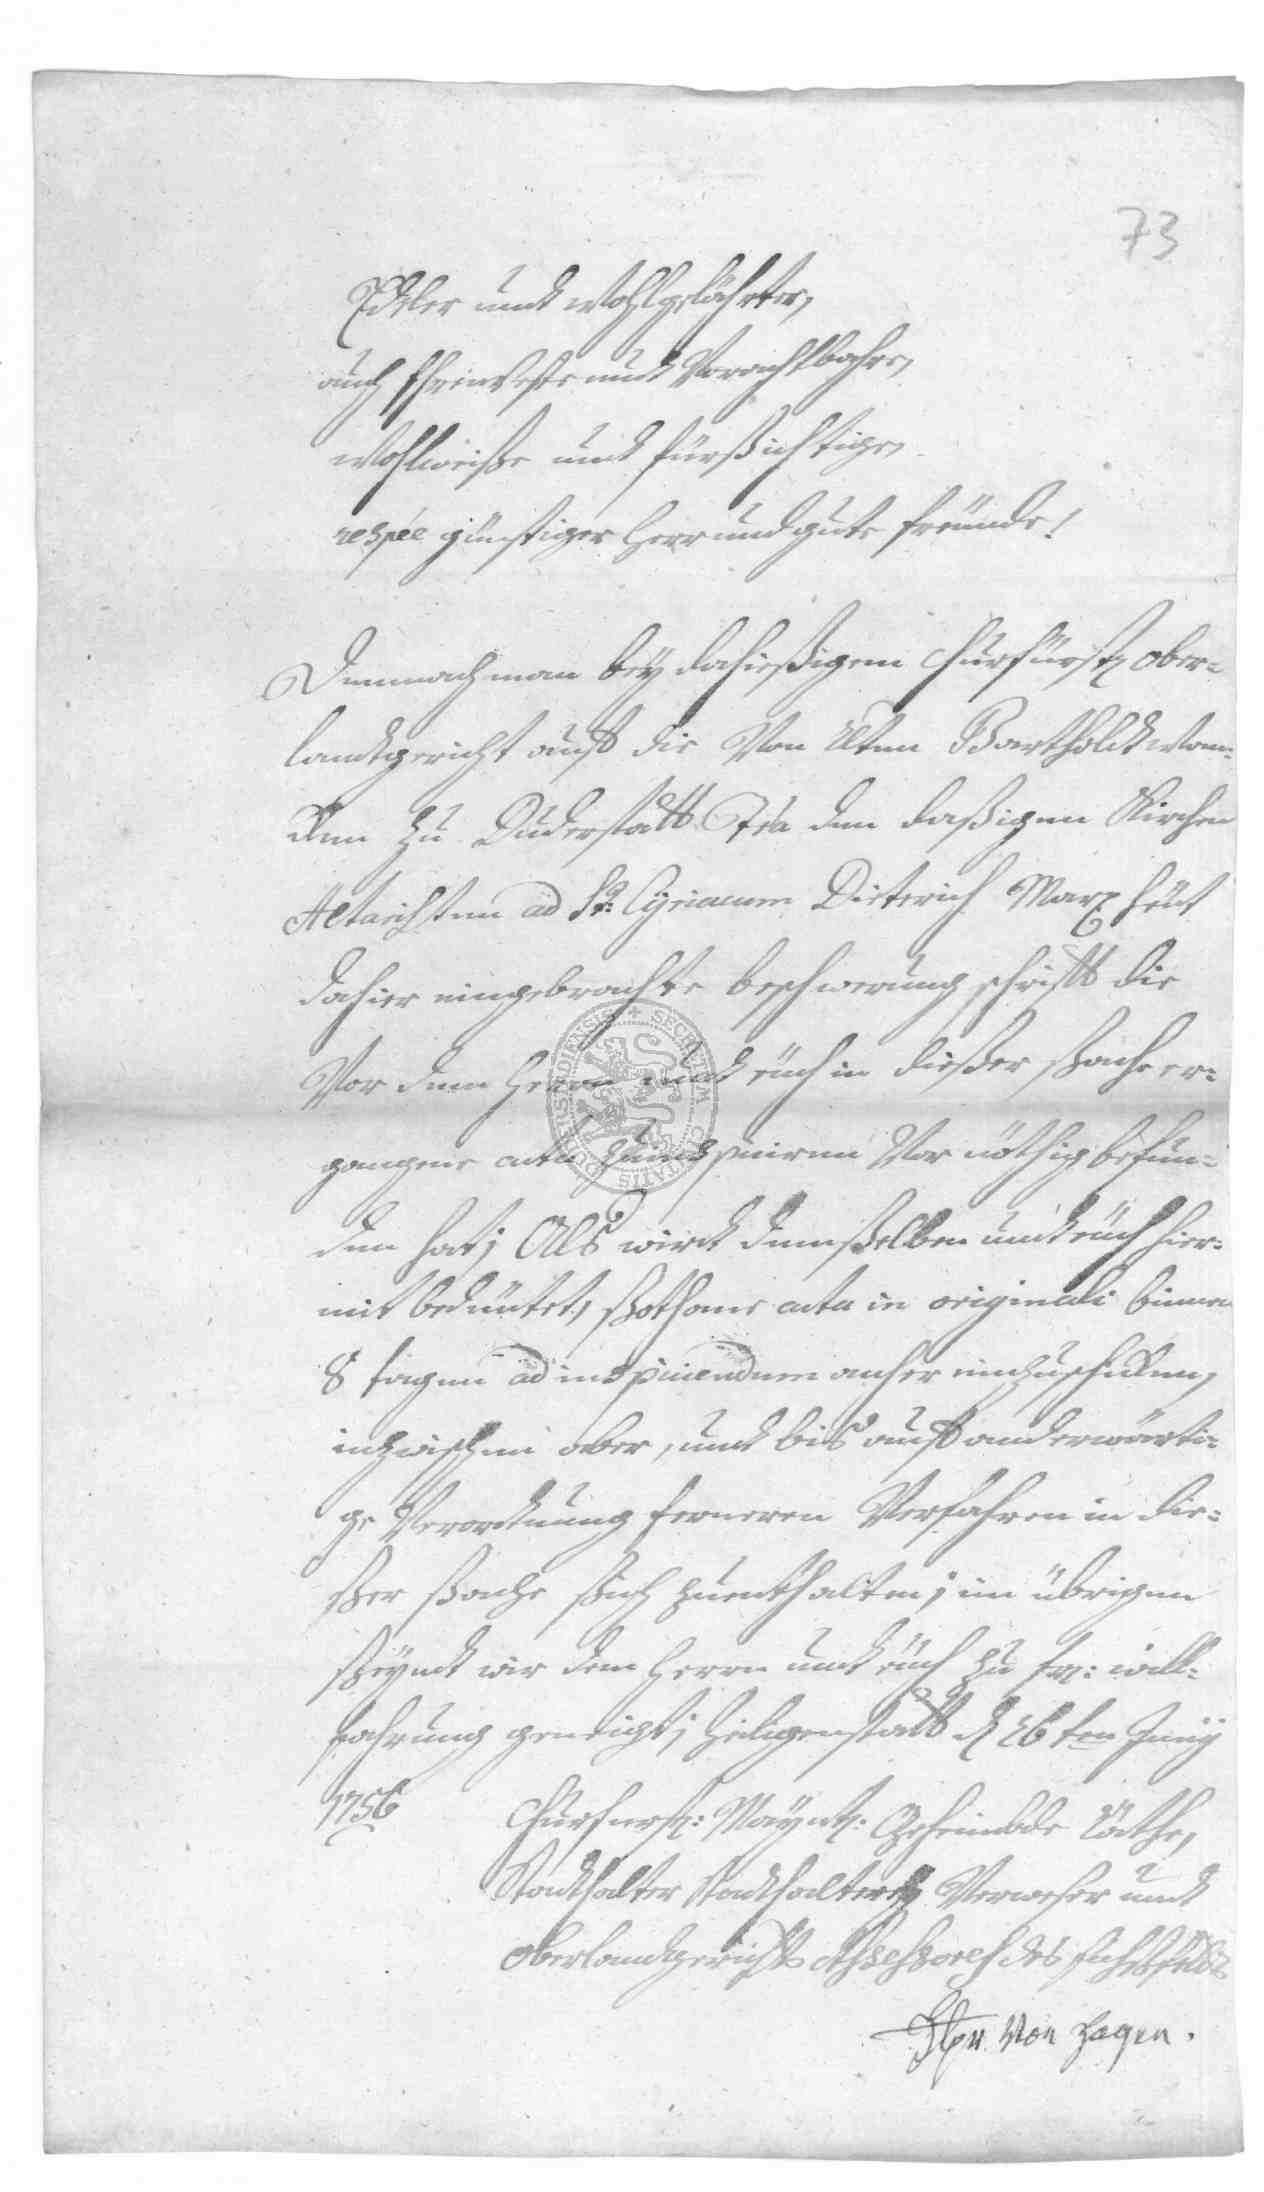 73
Edeler undt wohlgelährter,
auch Ehrenveste undt Vorachtbahre,
wohlweiße undt fürßichtige,
respée günstiger Herr und gute freünde!
Demnach man bey dahießigem Churfürstl ober-
landtgericht auff die Von Alten Barthold wan-
zu Duderstatt Ctra den daßigen Kirchen
Altaristen ad Stum: Cyriacum Dieterich Marx heüt
dahier eingebrachte beschwerung schrifft die
Vor dem Herrn undt eüch in dießer ßache er-
gangene acta zu inspiciren Vor nöthig befun-
den hat; Als wirdt demßelben undt eüch hier-
mit bedeütet, ßothane acta in originali binnen
8 tagen ad inspiciendum anher einzuschicken,
inzwischen aber, undt bis auff anderwärti-
ge Verordtnung ferneren Verfahren in die-
ßer ßache ßich zuenthalten; im übrigen
ßeyndt wir dem Herrn undt eüch zu frl: will-
fahrung geneigt; Heiligenstatt d 26ten Juny
1756
Churfürstl: Mayntz: Geheimbde Räthe,
Stadthalter Stadthalterey Verweser undt
Oberlandtgerichts Assessores des Eichsfelds
von Hagen.
SECRETUM CIVITATIS DUDERSTADIENSIS